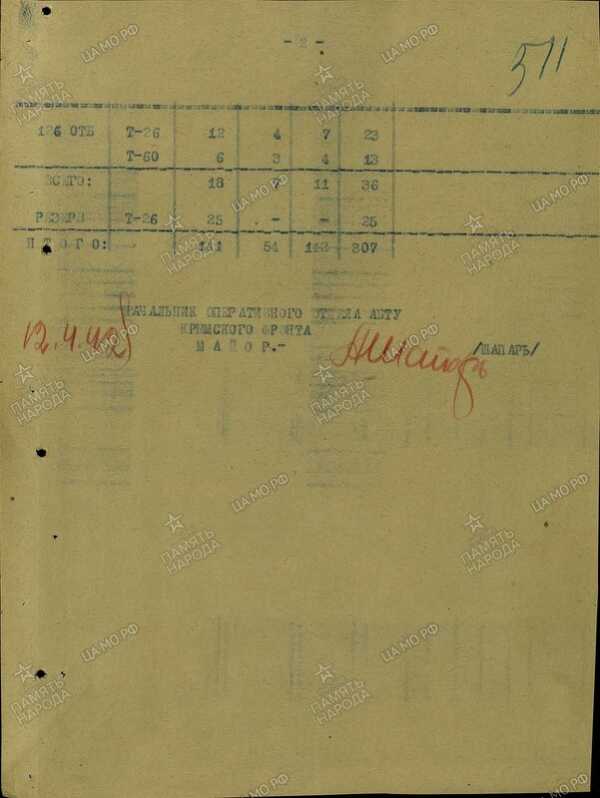 - 2 -
511
126 ОТБ Т-26 12 4 7 23
Т-60 6 3 4 13
ВСЕГО: 18 7 11 36
РЕЗЕРВ Т-26 25 - - 25
И Т О Г О: 141 54 112 307
НАЧАЛЬНИК ОПЕРАТИВНОГО ОТДЕЛА АБТУ
КРЫМСКОГО ФРОНТА
М А Й О Р.-
/ШАПАРЬ/
12.4.42
ПАМЯТЬ
НАРОДА
ЦА МО.РФ